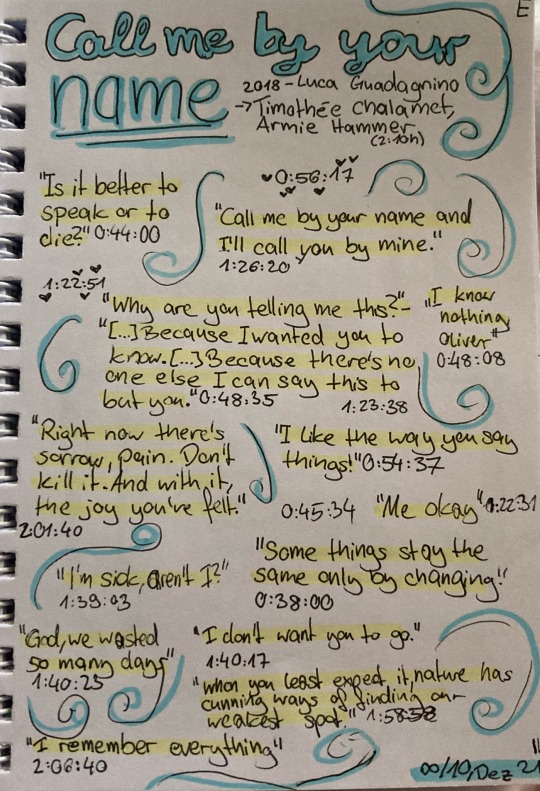 E
Call me by your
name
2018 - Luca Guadagnino
→ Timothée Chalamet,
Armie Hammer
(2:10h)
"Is it better to
speak or to
die?" 0:44:00
0:56:17
"Call me by your name and
I'll call you by mine."
1:26:20
1:22:51
"Why are you telling me this?"-
"[...] Because I wanted you to
know. [...] Because there's no
one else I can say this to
but you." 0:48:35
"I know
nothing
Oliver"
0:48:08
1:23:38
"Right now there's
sorrow, pain. Don't
kill it. And with it,
the joy you've felt."
2:01:40
"I like the way you say
things!" 0:54:37
0:45:34
"Me okay" 0:22:31
"I'm sick, aren't I?"
1:39:03
"Some things stay the
same only by changing!"
0:38:00
"God, we wasted
so many days"
1:40:25
"I don't want you to go."
1:40:17
"when you least expect it, nature has
cunning ways of finding our
weakest spot." 1:58:58
"I remember everything"
2:06:40
∞/10, Dez 21